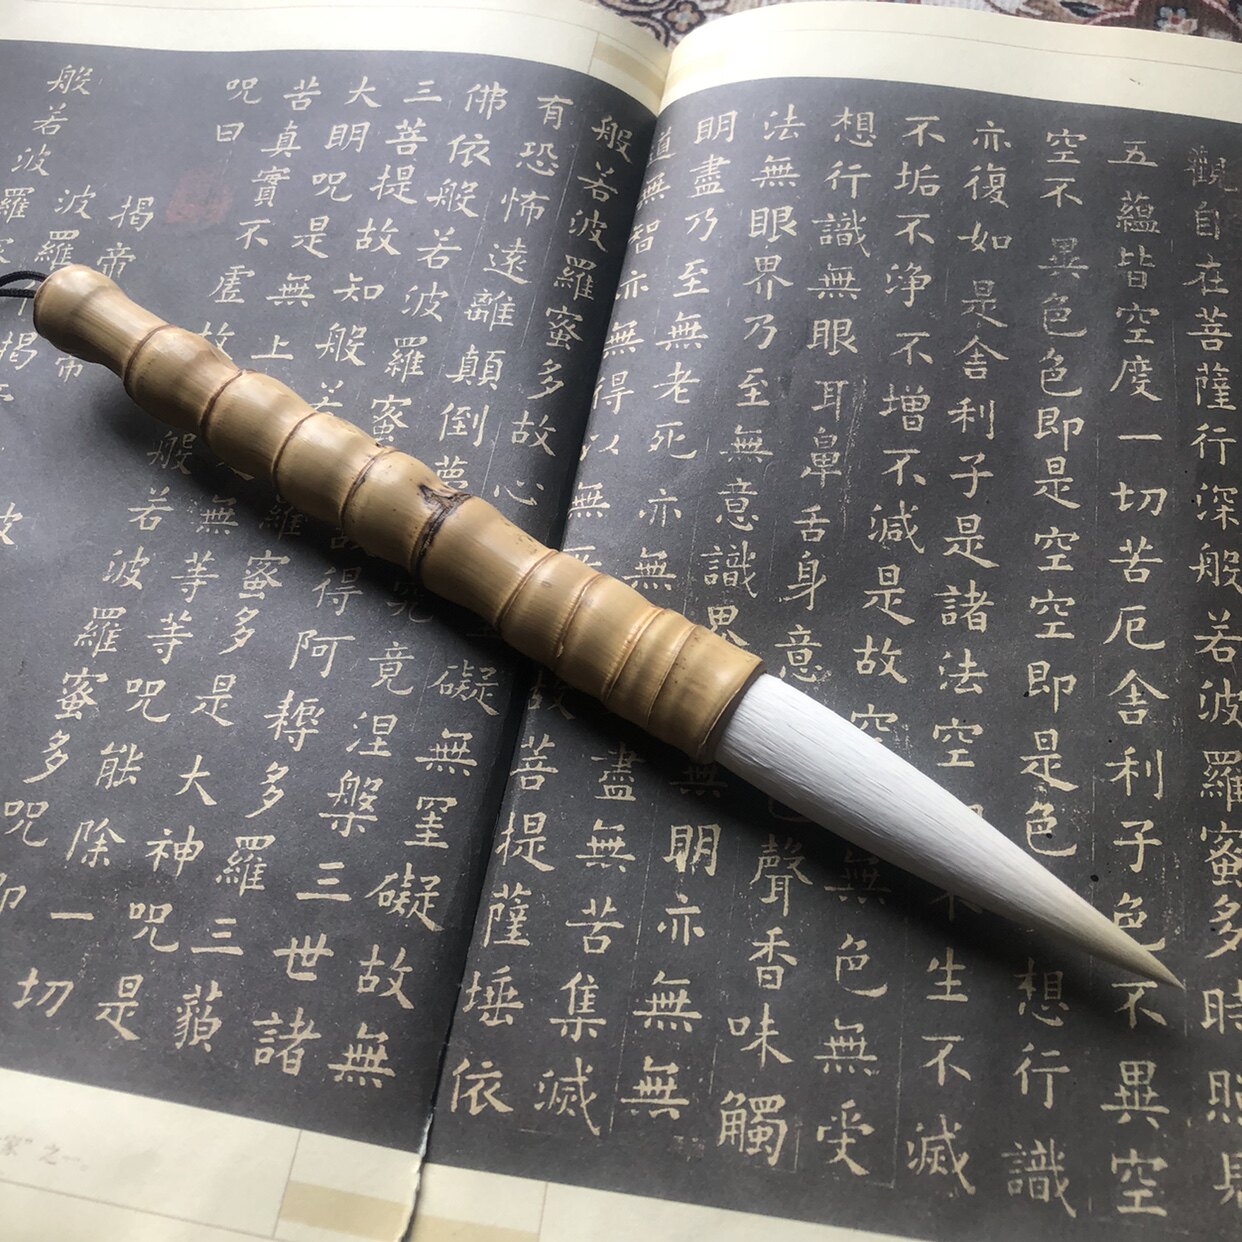 觀自在菩薩行深般若波羅蜜多時照見
五蘊皆空度一切苦厄舍利子色不異空
空不異色色即是空空即是色想行識
亦復如是舍利子是諸法空不生不滅
不垢不净不增不減是故空無色無受
想行識無眼耳鼻舌身意色聲香味觸
法無眼界乃至無意識界無明亦無無
明盡乃至無老死亦無盡無苦集滅
道無智亦無得以無故菩提薩埵依
般若波羅蜜多故心礙無罣礙故無
有恐怖遠離顛倒夢究竟涅槃三世諸
佛依般若波羅蜜故得阿耨多羅三藐
三菩提故知般若羅蜜多是大神呪是
大明呪是無上無等等呪能除一切
苦真實不虛故般若波羅蜜多呪即
呪曰
揭帝
波羅帝
般若波羅
家”之一。